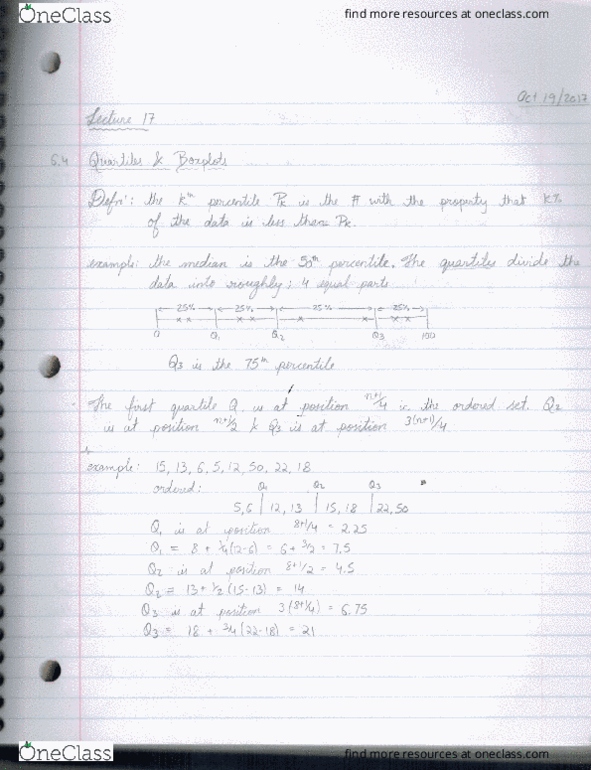 OneClass
find more resources at oneclass.com
Oct 19/2017
Lecture 17
6.4 Quartiles & Boxplots
Defn': the kth percentile Pk is the # with the property that k%
of the data is less than Pk.
example: the median is the 50th percentile. The quartiles divide the
data into roughly; 4 equal parts
25% 25% 25% 25%
0 Q1 Q2 Q3 100
Q3 is the 75th percentile
The first quartile Q1 is at position n+1/4 in the ordered set. Q2
is at position n+1/2 & Q3 is at position 3(n+1)/4
example: 15, 13, 6, 5, 12, 50, 22, 18
ordered: Q1 Q2 Q3
5,6 | 12, 13 | 15, 18 | 22, 50
Q1 is at position 8+1/4 = 2.25
Q1 = 8 + 1/4(12-6) = 6 + 3/2 = 7.5
Q2 is at position 8+1/2 = 4.5
Q2 = 13 + 1/2 (15-13) = 14
Q3 is at position 3(8+1/4) = 6.75
Q3 = 18 + 3/4(22-18) = 21
OneClass
find more resources at oneclass.com